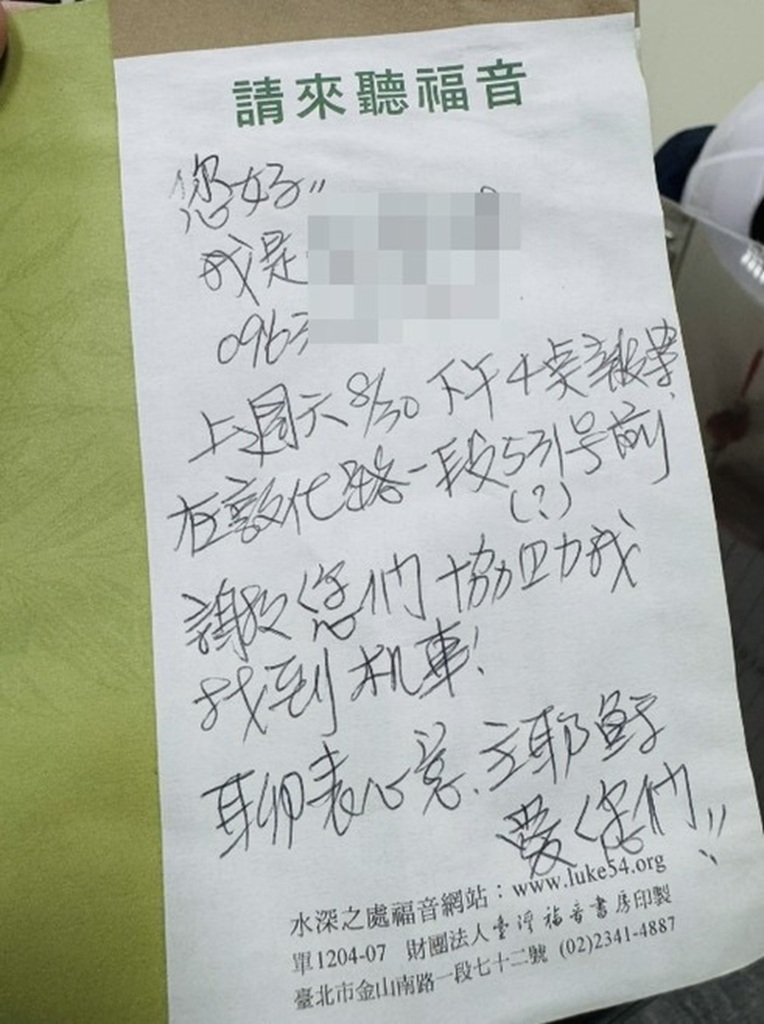 請來聽福音
您好"
我是
0963
上週六8/30下午4點報案
在敦化路一段531号前
(?)
謝謝您們協助我
找到机車!
聊表心意.主耶穌
愛您們"
水深之處福音網站:www.luke54.org
單1204-07 財團法人臺灣福音書房印製
臺北市金山南路一段七十二號 (02)2341-4887